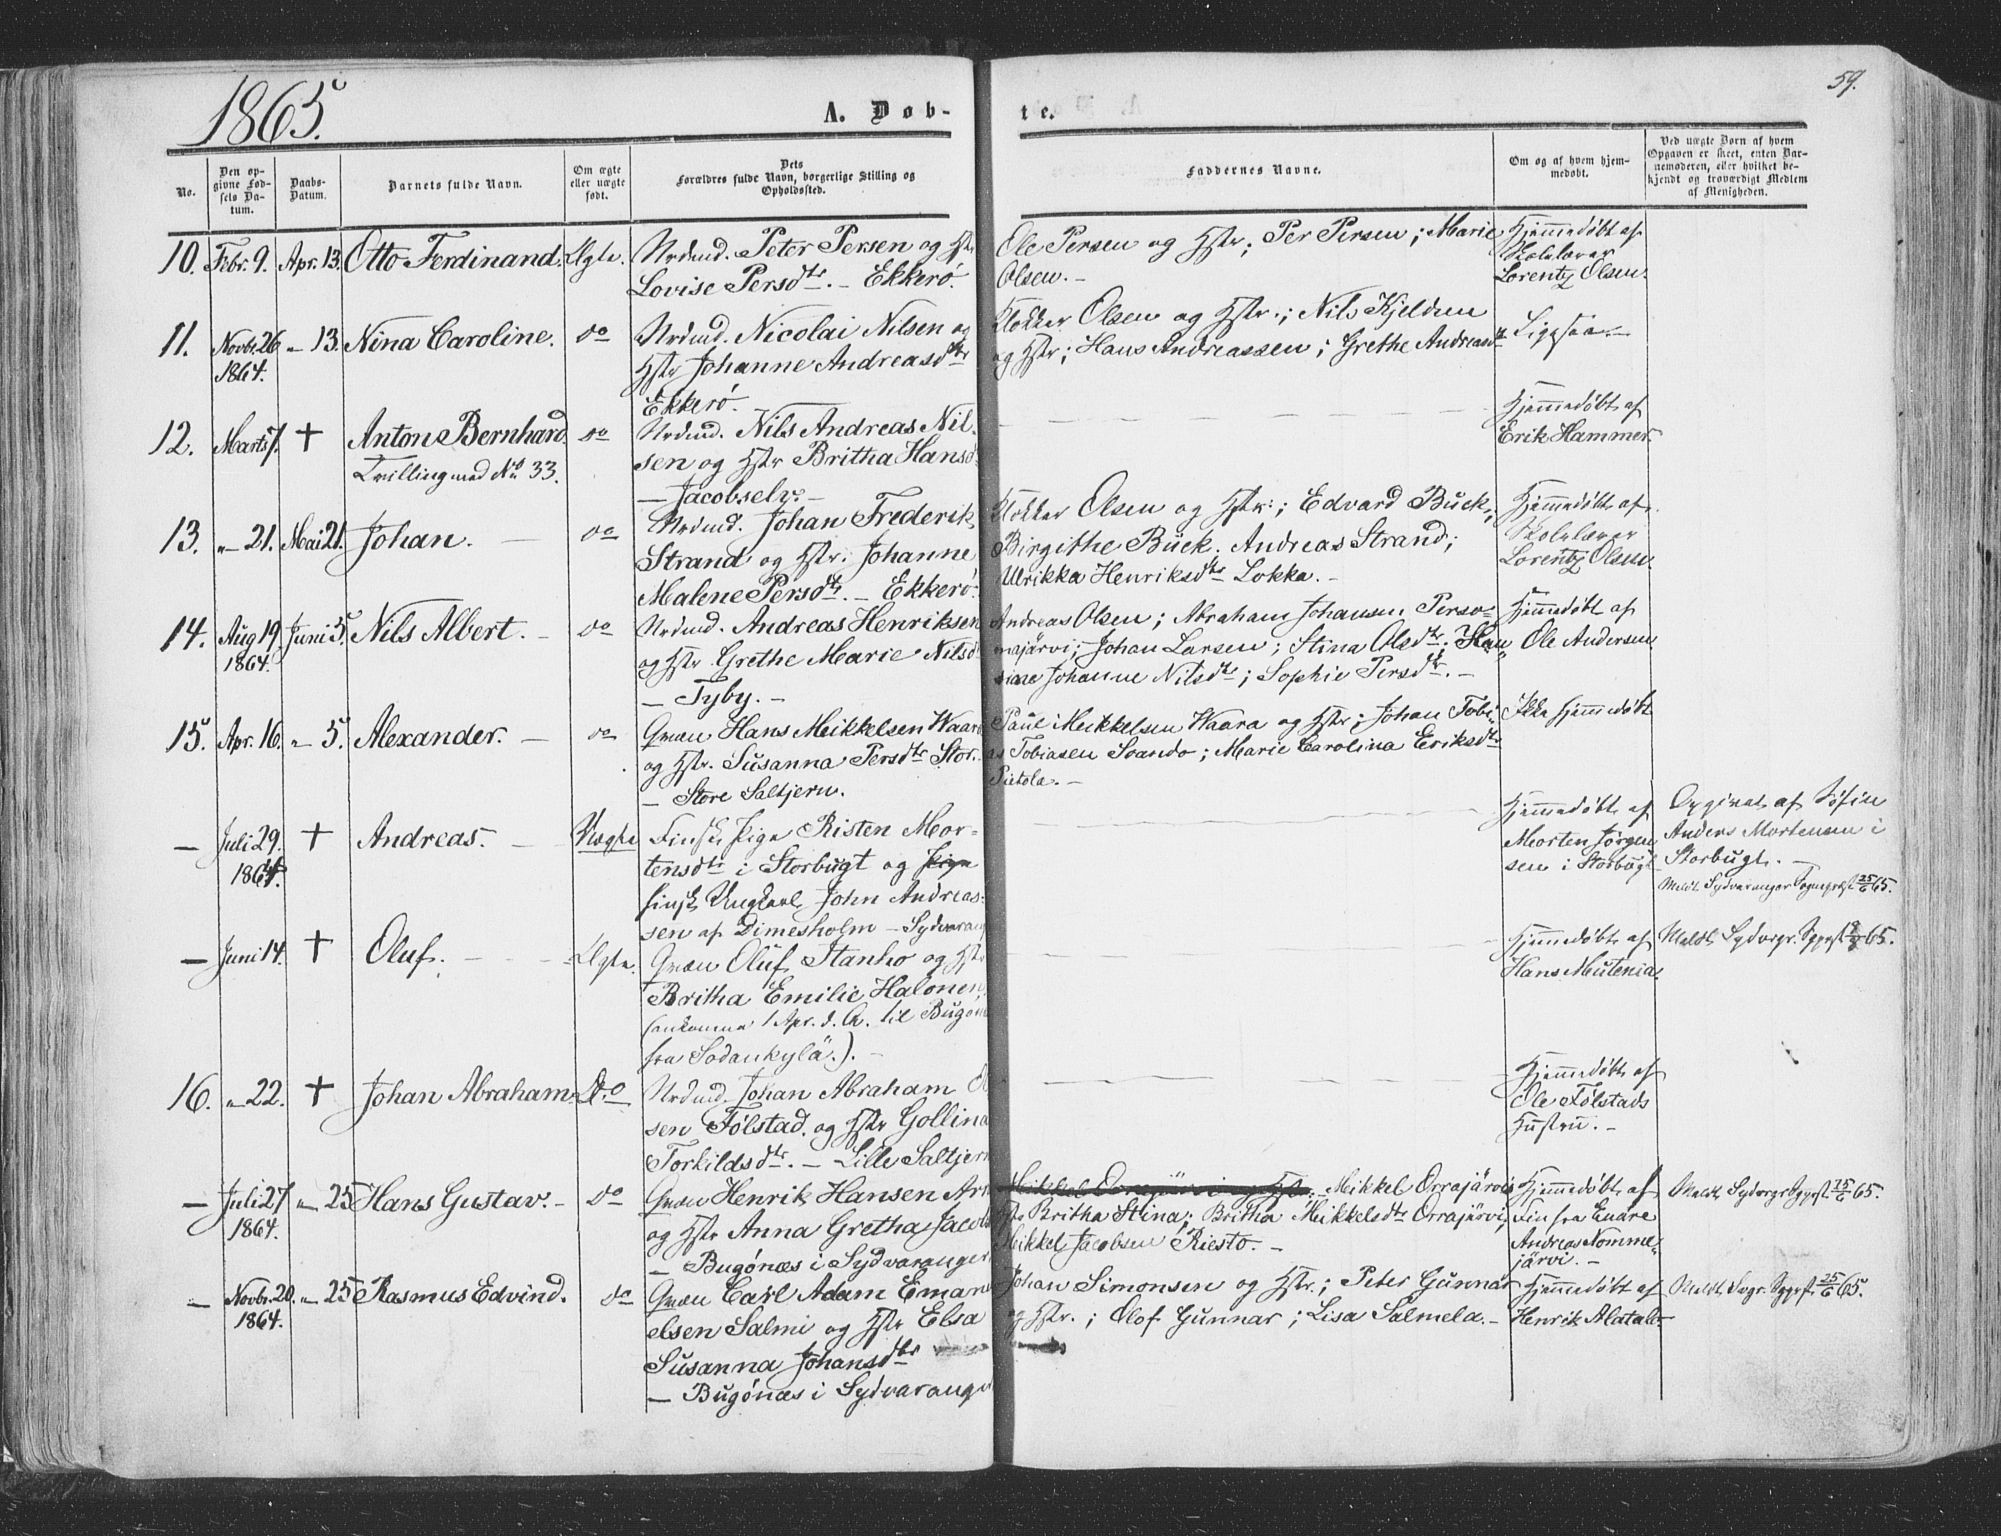 1865.
A. Døb-
te.
59.
No.
Den op-
givne Fød-
sels Da-
tum.
Daabs-
Datum.
Barnets fulde Navn.
Om ægte
eller uægte
født.
Dets
Forældres fulde Navn, borgerlige Stilling og
Opholdssted.
Faddernes Navne.
Om og af hvem hjem-
medøbt.
Ved uægte Børn af hvem
Opgaven er skeet, enten Bar-
nemoderen, eller hvilket be-
kjendt og troværdigt Medlem
af Menigheden.
10. Febr. 9. Apr. 13. Otto Ferdinand. Ægte.
Nrdmd. Peter Persen og Hstr
Lovise Persdtr. - Ekkerö.
Ole Persen og Hstr; Per Persen; Marie
Olsen. -
Hjemmedøbt af
Skolelærer
Lorentz Olsen.
11. Novbr. 26 1864. „ 13. Nina Caroline. do
Nrdmd. Nicolai Nilsen og
Hstr Johanne Andreasdtr
Ekkerö.
Klokker Olsen og Hstr.; Nils Kjeldsen
og Hstr; Hans Andreassen; Grethe Andreasdtr
Ligesaa. -
12. Marts 7. + Anton Bernhard. do
Tvilling med No. 33.
Nrdmd. Nils Andreas Nil-
sen og Hstr Britha Hansd
- Jacobselv. -
Hjemmedøbt af
Erik Hammer.
13. „ 21. Mai 21. Johan. - do
Nrdmd. Johan Frederik
Strand og Hstr. Johanne
Malene Persdtr. - Ekkerö.
Klokker Olsen og Hstr.; Edvard Buck;
Birgithe Buck; Andreas Strand;
Ulrikka Henriksdtr Lokka. -
Hjemmedøbt af
Skolelærer
Lorentz Olsen.
14. Aug 19. 1864. Juni 5. Nils Albert. - do
Nrdmd. Andreas Henriksen
og Hstr Grethe Marie Nilsd
- Tyby. -
Andreas Olsen; Abraham Johansen Perso-
majärvi; Johan Larsen; Stina Olsdtr; Han-
sine Johanne Nilsdtr; Sophie Persdtr. -
Hjemmedøbt af
Ole Andersen
15. Apr. 16. „ 5. Alexander. - do
Qvæn Hans Meikkelsen Waara
og Hstr. Susanna Persdtr Stor.
- Store Saltjern.
Paul Meikkelsen Waara og Hstr; Johan Tobi-
as Tobiasen Soando; Marie Carolina Eriksdtr
Pietola. -
Ikke hjemmedøbt
- Juli 29. 1864. + Andreas. - Uægte
Finsk Pige Risten Mor-
tensdtr i Storbugt og Pige
finsk Ungkarl John Andreas-
sen af Dimesholm - Sydvarang
Hjemmedøbt af
Morten Jørgen
sen i Storbugt
Opgivet af Søfin
Anders Mortensen i
Storbugt. -
Meldt Sydvaranger Sognepræst 25/6 65.
- Juni 14. + Oluf. - Ægte.
Qvæn Oluf Stanho og Hstr
Britha Emilie Halonen
(ankomne 1 Apr. d. A. til Bugøn
fra Sodankylä.). -
Hjemmedøbt af
Hans Mutenia.
Meldt Sydvrgr. Sgprst 65.
16. „ 22. + Johan Abraham. Do
Nrdmd. Johan Abraham Ol
sen Følstad. og Hstr Gollina
Torkildsdtr. - Lille Saltjern
Hjemmedøbt af
Ole Følstads
Hustru. -
- Juli 27 1864. „ 25 Hans Gustav. - Do
Qvæn Henrik Hansen Arn
og Hstr Anna Gretha Jacobs
- Bugönæs i Sydvaranger
Meikkel Orrajärvi og Hstr; Mikkel Orrajärvis
Hstr Britha Stina; Britha Meikkelsdtr Orrajärvi;
Mikkel Jacobsen Riesto. -
Hjemmedøbt af
Fin fra Enare
Andreas Nomme-
järvi. -
Meldt Sydvrgr Sgprst 25/6 65.
- Novbr. 20. 1864. „ 25 Rasmus Edvind. Do
Qvæn Carl Adam Emanu
elsen Salmi og Hstr Elsa
Susanna Johansdtr
- Bugönæs i Sydvarange
Johan Simonsen og Hstr.; Peter Gunnar
og Hstr.; Olof Gunnar; Lisa Salmela. -
Hjemmedøbt af
Henrik Alatalo.
Meldt Svgr. Sgprst. 25/6 65.